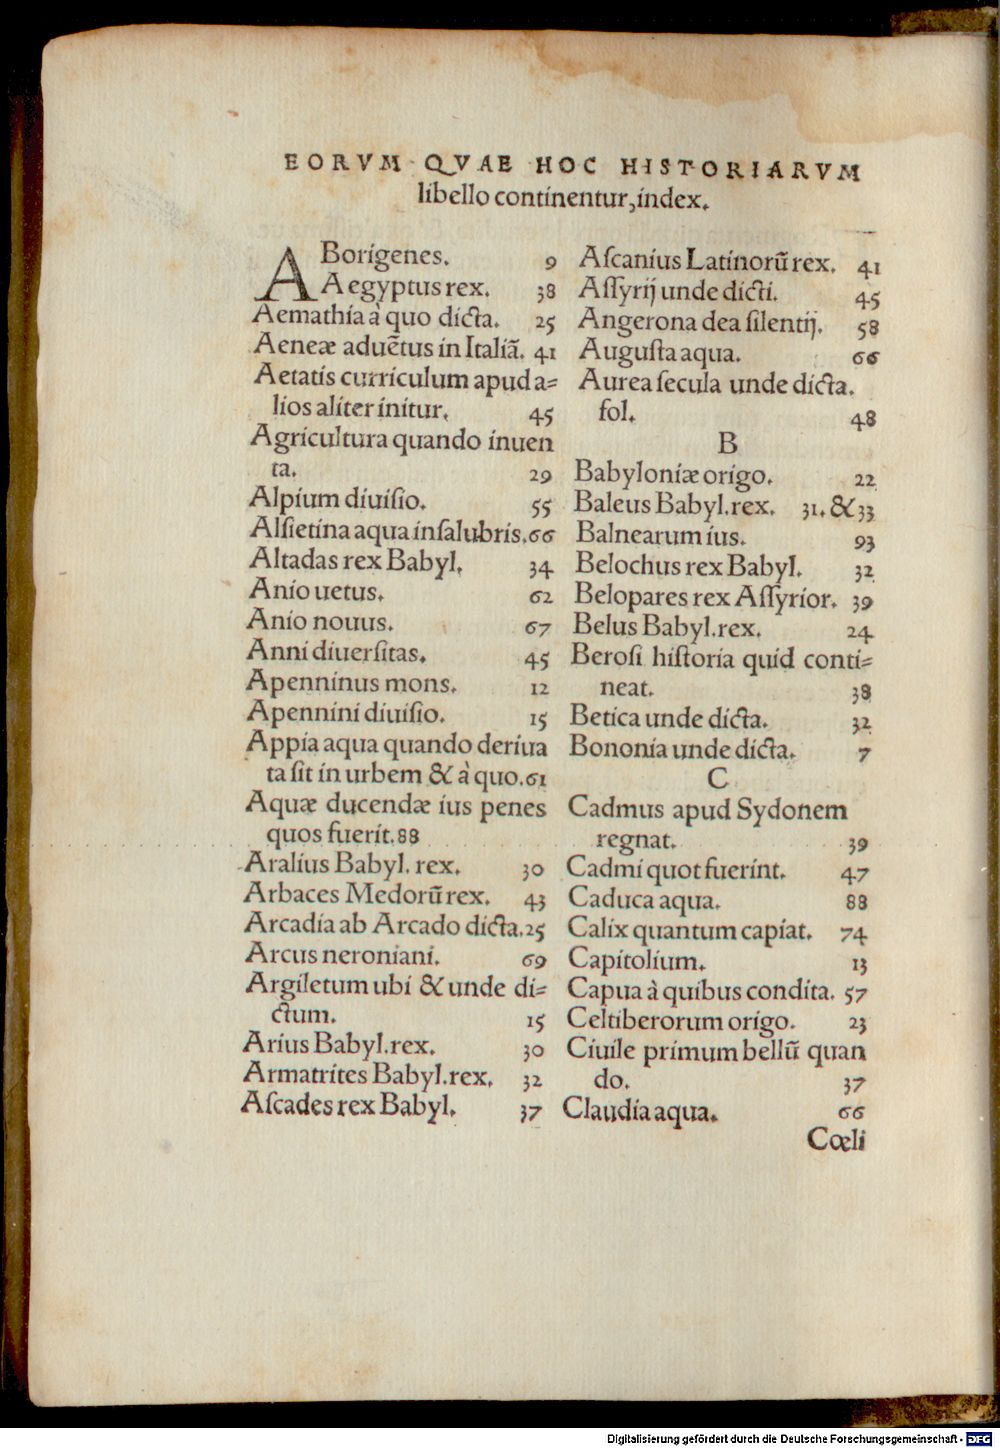 EORVM QVAE HOC HISTORIARVM
libello continentur, index.
ABorigenes. 9
Aegyptus rex. 38
Aemathia à quo dicta. 25
Aeneæ aduẽtus in Italiã. 41
Aetatis curriculum apud a=
lios aliter initur. 45
Agricultura quando inuen
ta. 29
Alpium diuiſio. 55
Alſietina aqua inſalubris. 66
Altadas rex Babyl. 34
Anio uetus. 62
Anio nouus. 67
Anni diuerſitas. 45
Apenninus mons. 12
Apennini diuiſio. 15
Appia aqua quando deriua
ta ſit in urbem & à quo. 61
Aquæ ducendæ ius penes
quos fuerit. 88
Aralius Babyl. rex. 30
Arbaces Medorũ rex. 43
Arcadia ab Arcado dicta. 25
Arcus neroniani. 69
Argiletum ubi & unde di=
ctum. 15
Arius Babyl. rex. 30
Armatrites Babyl. rex. 32
Aſcades rex Babyl. 37
Aſcanius Latinorũ rex. 41
Aſſyrij unde dicti. 45
Angerona dea ſilentij. 58
Auguſta aqua. 66
Aurea ſecula unde dicta.
fol. 48
B
Babyloniæ origo. 22
Baleus Babyl. rex. 31. & 33
Balnearum ius. 93
Belochus rex Babyl. 32
Belopares rex Aſſyrior. 39
Belus Babyl. rex. 24
Beroſi hiſtoria quid conti=
neat. 38
Betica unde dicta. 32
Bononia unde dicta. 7
C
Cadmus apud Sydonem
regnat. 39
Cadmi quot fuerint. 47
Caduca aqua. 88
Calix quantum capiat. 74
Capitolium. 13
Capua à quibus condita. 57
Celtiberorum origo. 23
Ciuile primum bellũ quan
do. 37
Claudia aqua. 66
Cœli
Digitalisierung gefördert durch die Deutsche Forschungsgemeinschaft - DFG